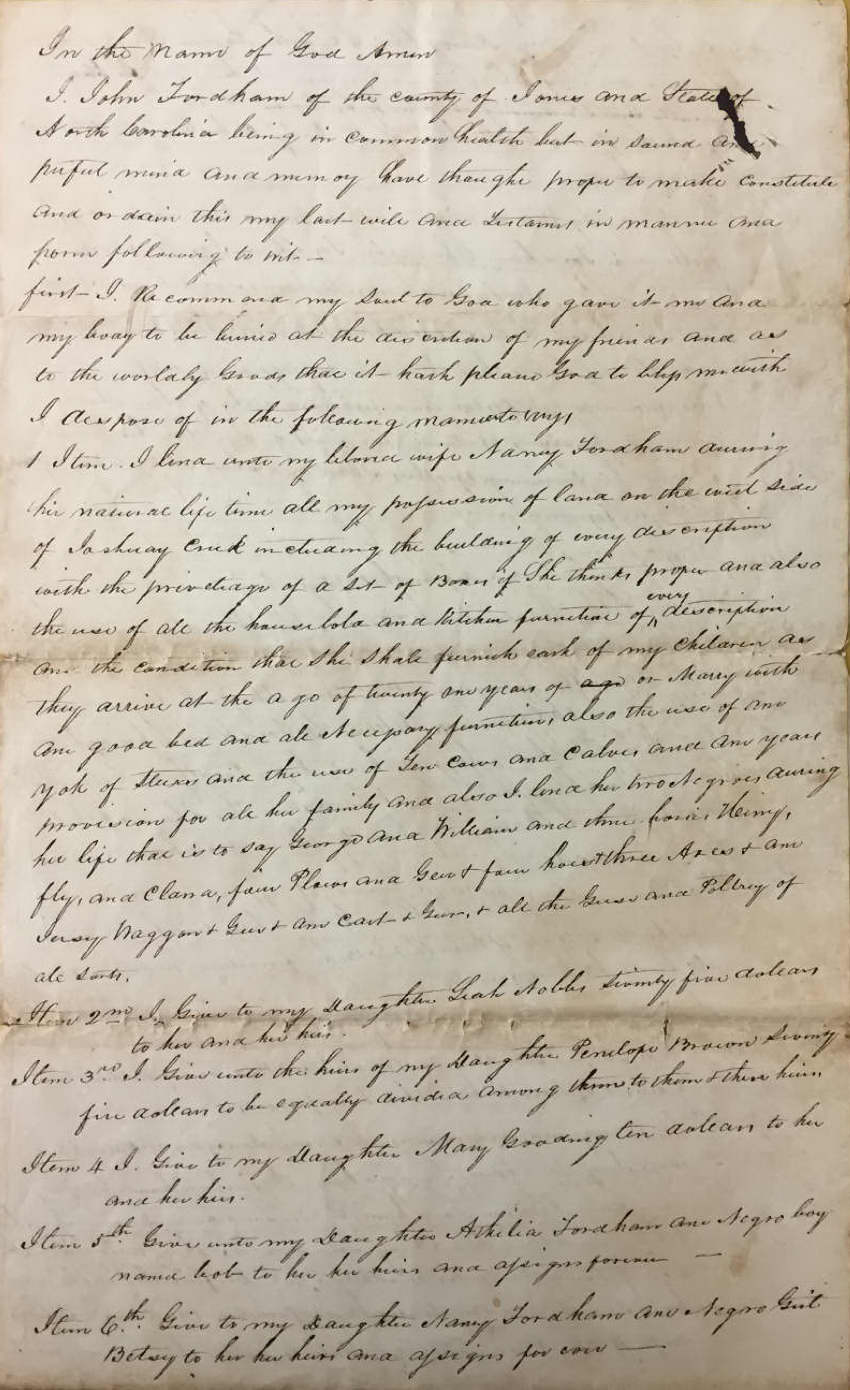 In the Name of God Amen
I. John Fordham of the county of Jones and State of
North Carolina being in common health but in sound and
perfect mind and memory have thought proper to make Constitute
and ordain this my last will and Testament in manner and
form following to wit –
first – I. Recommend my Soul to God who gave it me and
my boday to be buried at the discretion of my friends and as
to the worldly Goods that it hath please God to bless me with
I despose of in the following manner to
1 Item. I lend unto my beloved wife Nancy Fordham during
her natural life time all my possession of land on the west side
of Joshuay Creek including the building of every discription
with the priveliage of a set of Boxes if She thinks proper and also
the use of all the household and Kitchen furniture of every description
on the condition that She Shall furnish each of my Children as
they arrive at the age of twenty one years of age or Marry with
one good bed and all Necessary furniture, also the use of one
yok of Steers and the use of Ten Cows and Calves and one years
provision for all her family and also I. lend her two Negroes during
her life that is to say George and William and three horses Heiny,
fly, and Clara, four Plows and Gear & four hoes & three Axes & one
Jersey Waggon & Gear & one Cart & Gear, & all the Geese and Poltry of
all sorts.
Item 2nd I. Give to my Daughter Leah Nobles Seventy five dolears
to her and her heirs.
Item 3rd I. Give unto the heirs of my Daughter Penelope Brown Seventy
five dolears to be equally divided among them to them & there heirs
Item 4 I. Give to my Daughter Mary Gooding ten dolears to her
and her heirs.
Item 5th. Give unto my Daughter Athelia Fordham one Negro boy
named bob to her her heirs and assigns forever —
Item 6th. Give to my Daughter Nancy Fordham one Negro Girl
Betsey to her her heirs and assigns for ever —